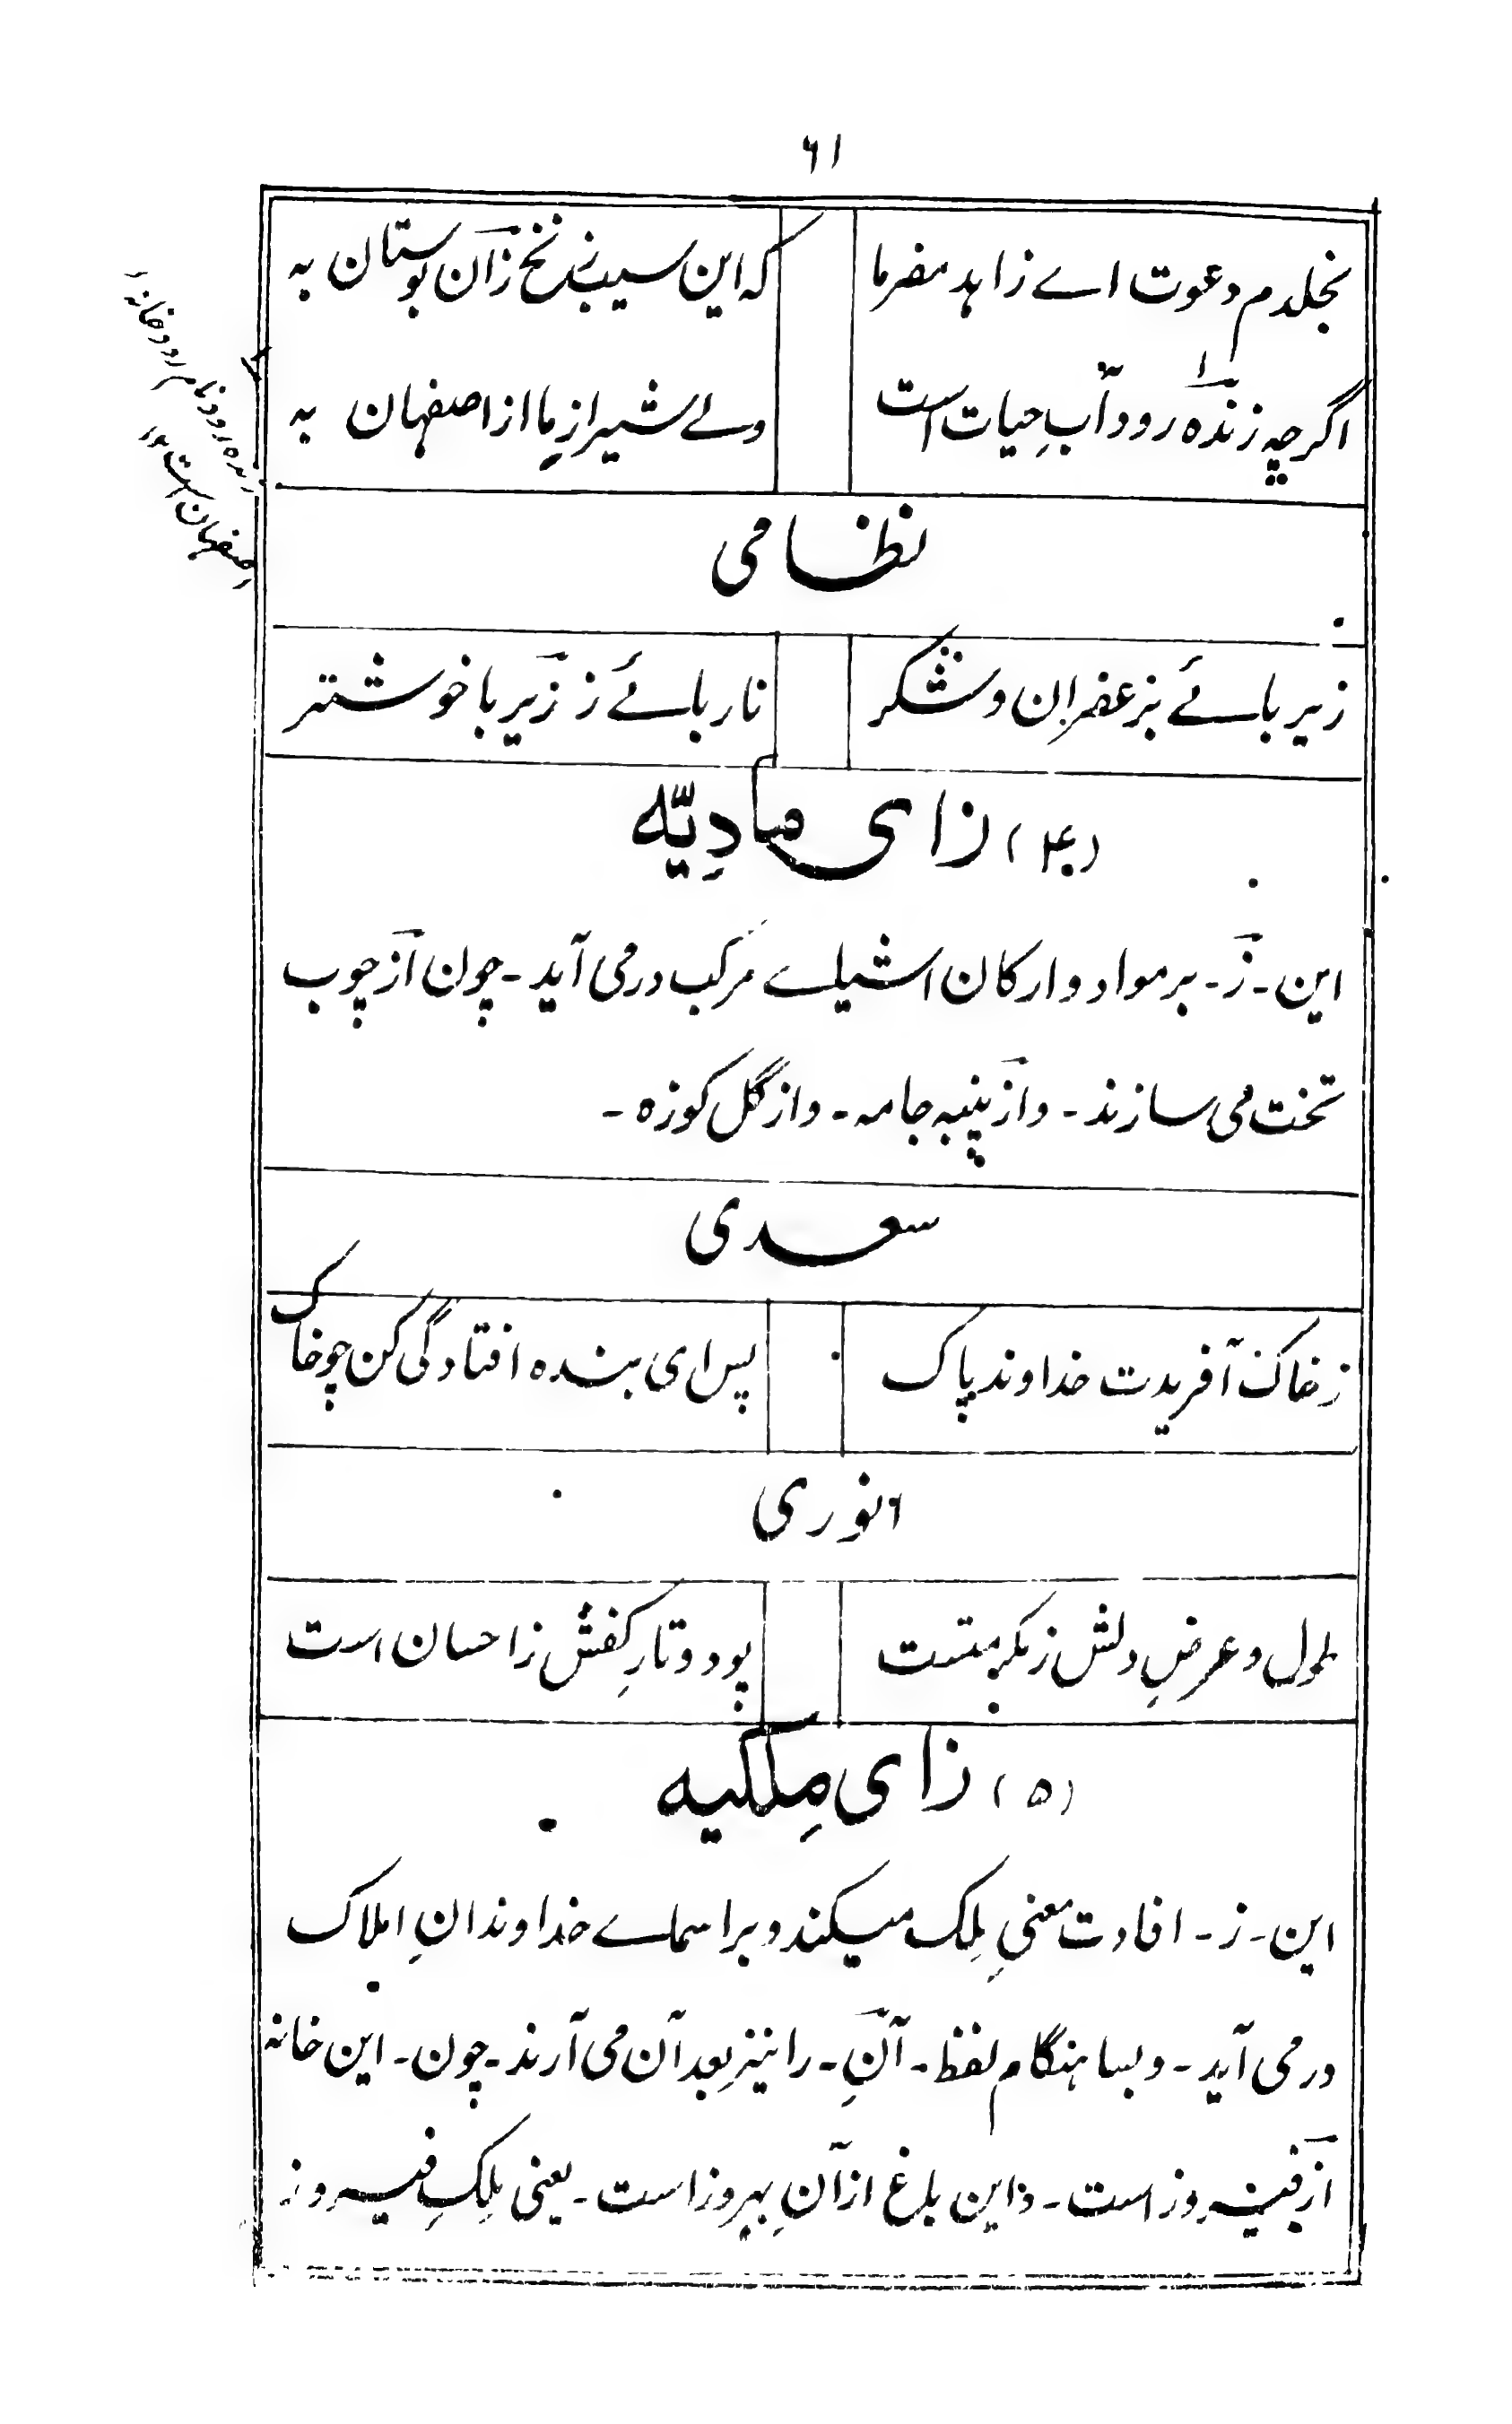 ۶۱
بخلدم دعوت اے زاہد مفرما که این سیب زنخ زان بوستان به
اگرچه زنده رود آبِ حیات است ولے شیرازِ ما از اصفهان به
زنده رود نام رودخانهٔ
اصفهان است
نظامی
زیربائے بزعفران و شکر ناربائے ز زیربا خوشتر
(۴) زای مادِیّه
این - ز - بر مواد و ارکان اشیاے مرکب درمی آید - چون از چوب
تخت می سازند - و از پنبه جامه - و از گل کوزه -
سعدی
زخاک آفریدت خداوند پاک پس ای بنده افتادگی کن چو خاک
انوری
طول و عرضِ دلش ز مکرمتست پود و تارِ کفش ز احسان است
(۵) زای مِلکیه
این - ز - افادت معنیِ مِلک میکند و بر اسماے خداوندانِ املاک
درمی آید - و بسا هنگام لفظ - آنِ - را نیز بعد آن می آرند - چون - این خانه
از فیروز است - و این باغ از آنِ بهروز است - یعنی مِلکِ فیروز